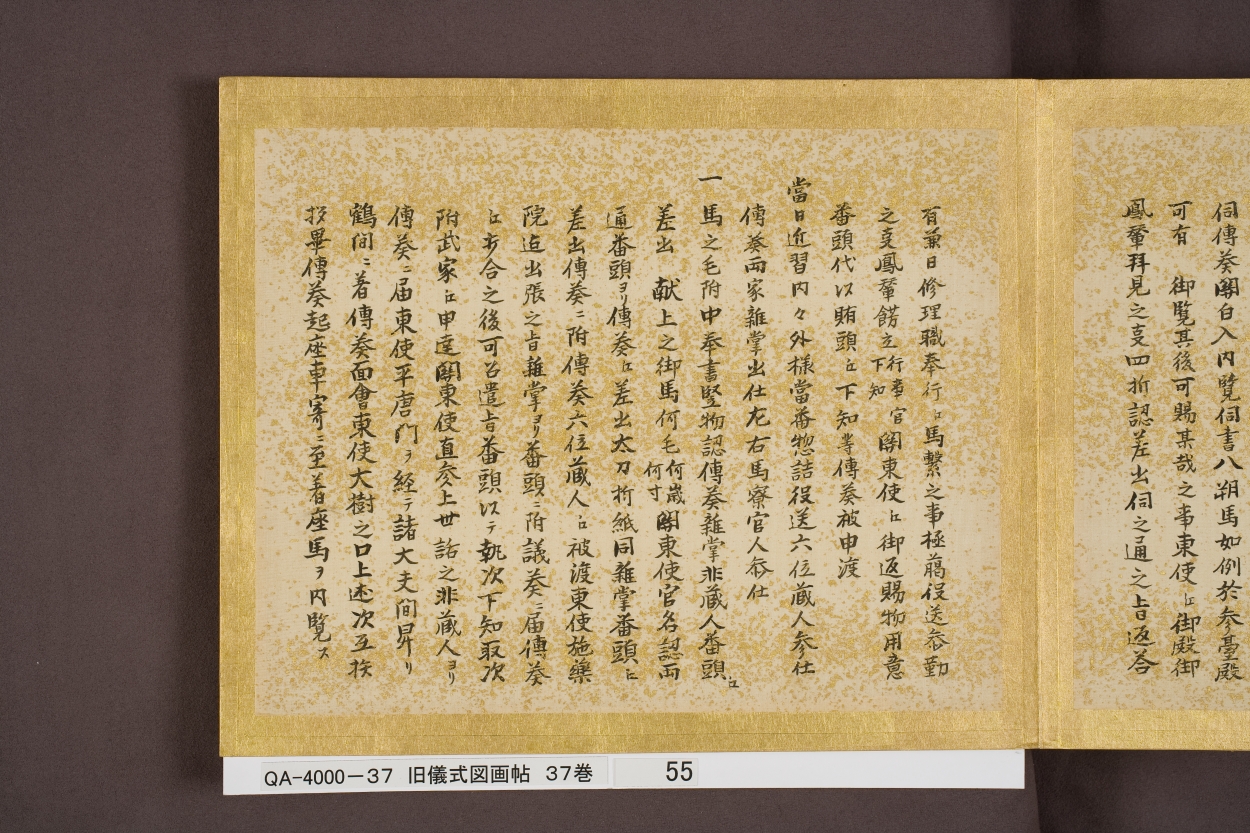 伺傳奏關白入内覽伺書八朔馬如例於参臺殿
可有　御覽其後可賜某哉之事東使ヨリ御殿御
鳳輦拜見之㕝四折認差出伺之通之旨返答
有兼日修理職奉行ヨリ馬繋之事極﨟役送参勤
之㕝鳳輦餝立行事下知官關東使ヨリ御返賜物用意
番頭代以賄頭ヨリ下知等傳奏被申渡
當日近習内々外様當番惣詰役送六位蔵人参仕
傳奏両家雑掌出仕左右馬寮官人参仕
一馬之毛附中奉書竪物認傳奏雑掌非蔵人番頭ヨリ
差出　献上之御馬何毛何歳何寸關東使官名認両
通番頭ヨリ傳奏ヨリ差出太刀折紙同雑掌番頭ニ
差出傳奏ニ附傳奏六位蔵人ヨリ被渡東使施藥
院迄出張之旨雑掌ヨリ番頭ニ附議奏ニ届傳奏
ヨリ歩合之後可召遣旨番頭以テ執次下知取次
附武家ヨリ申達關東使直参上世話之非蔵人ヨリ
傳奏ニ届東使平唐門ヲ経テ諸大夫間昇リ
鶴間ニ着傳奏面會東使大樹之口上述次互挨
拶畢傳奏起座車寄ニ至着座馬ヲ内覽ス
QA-4000-37 旧儀式図画帖 37巻
55